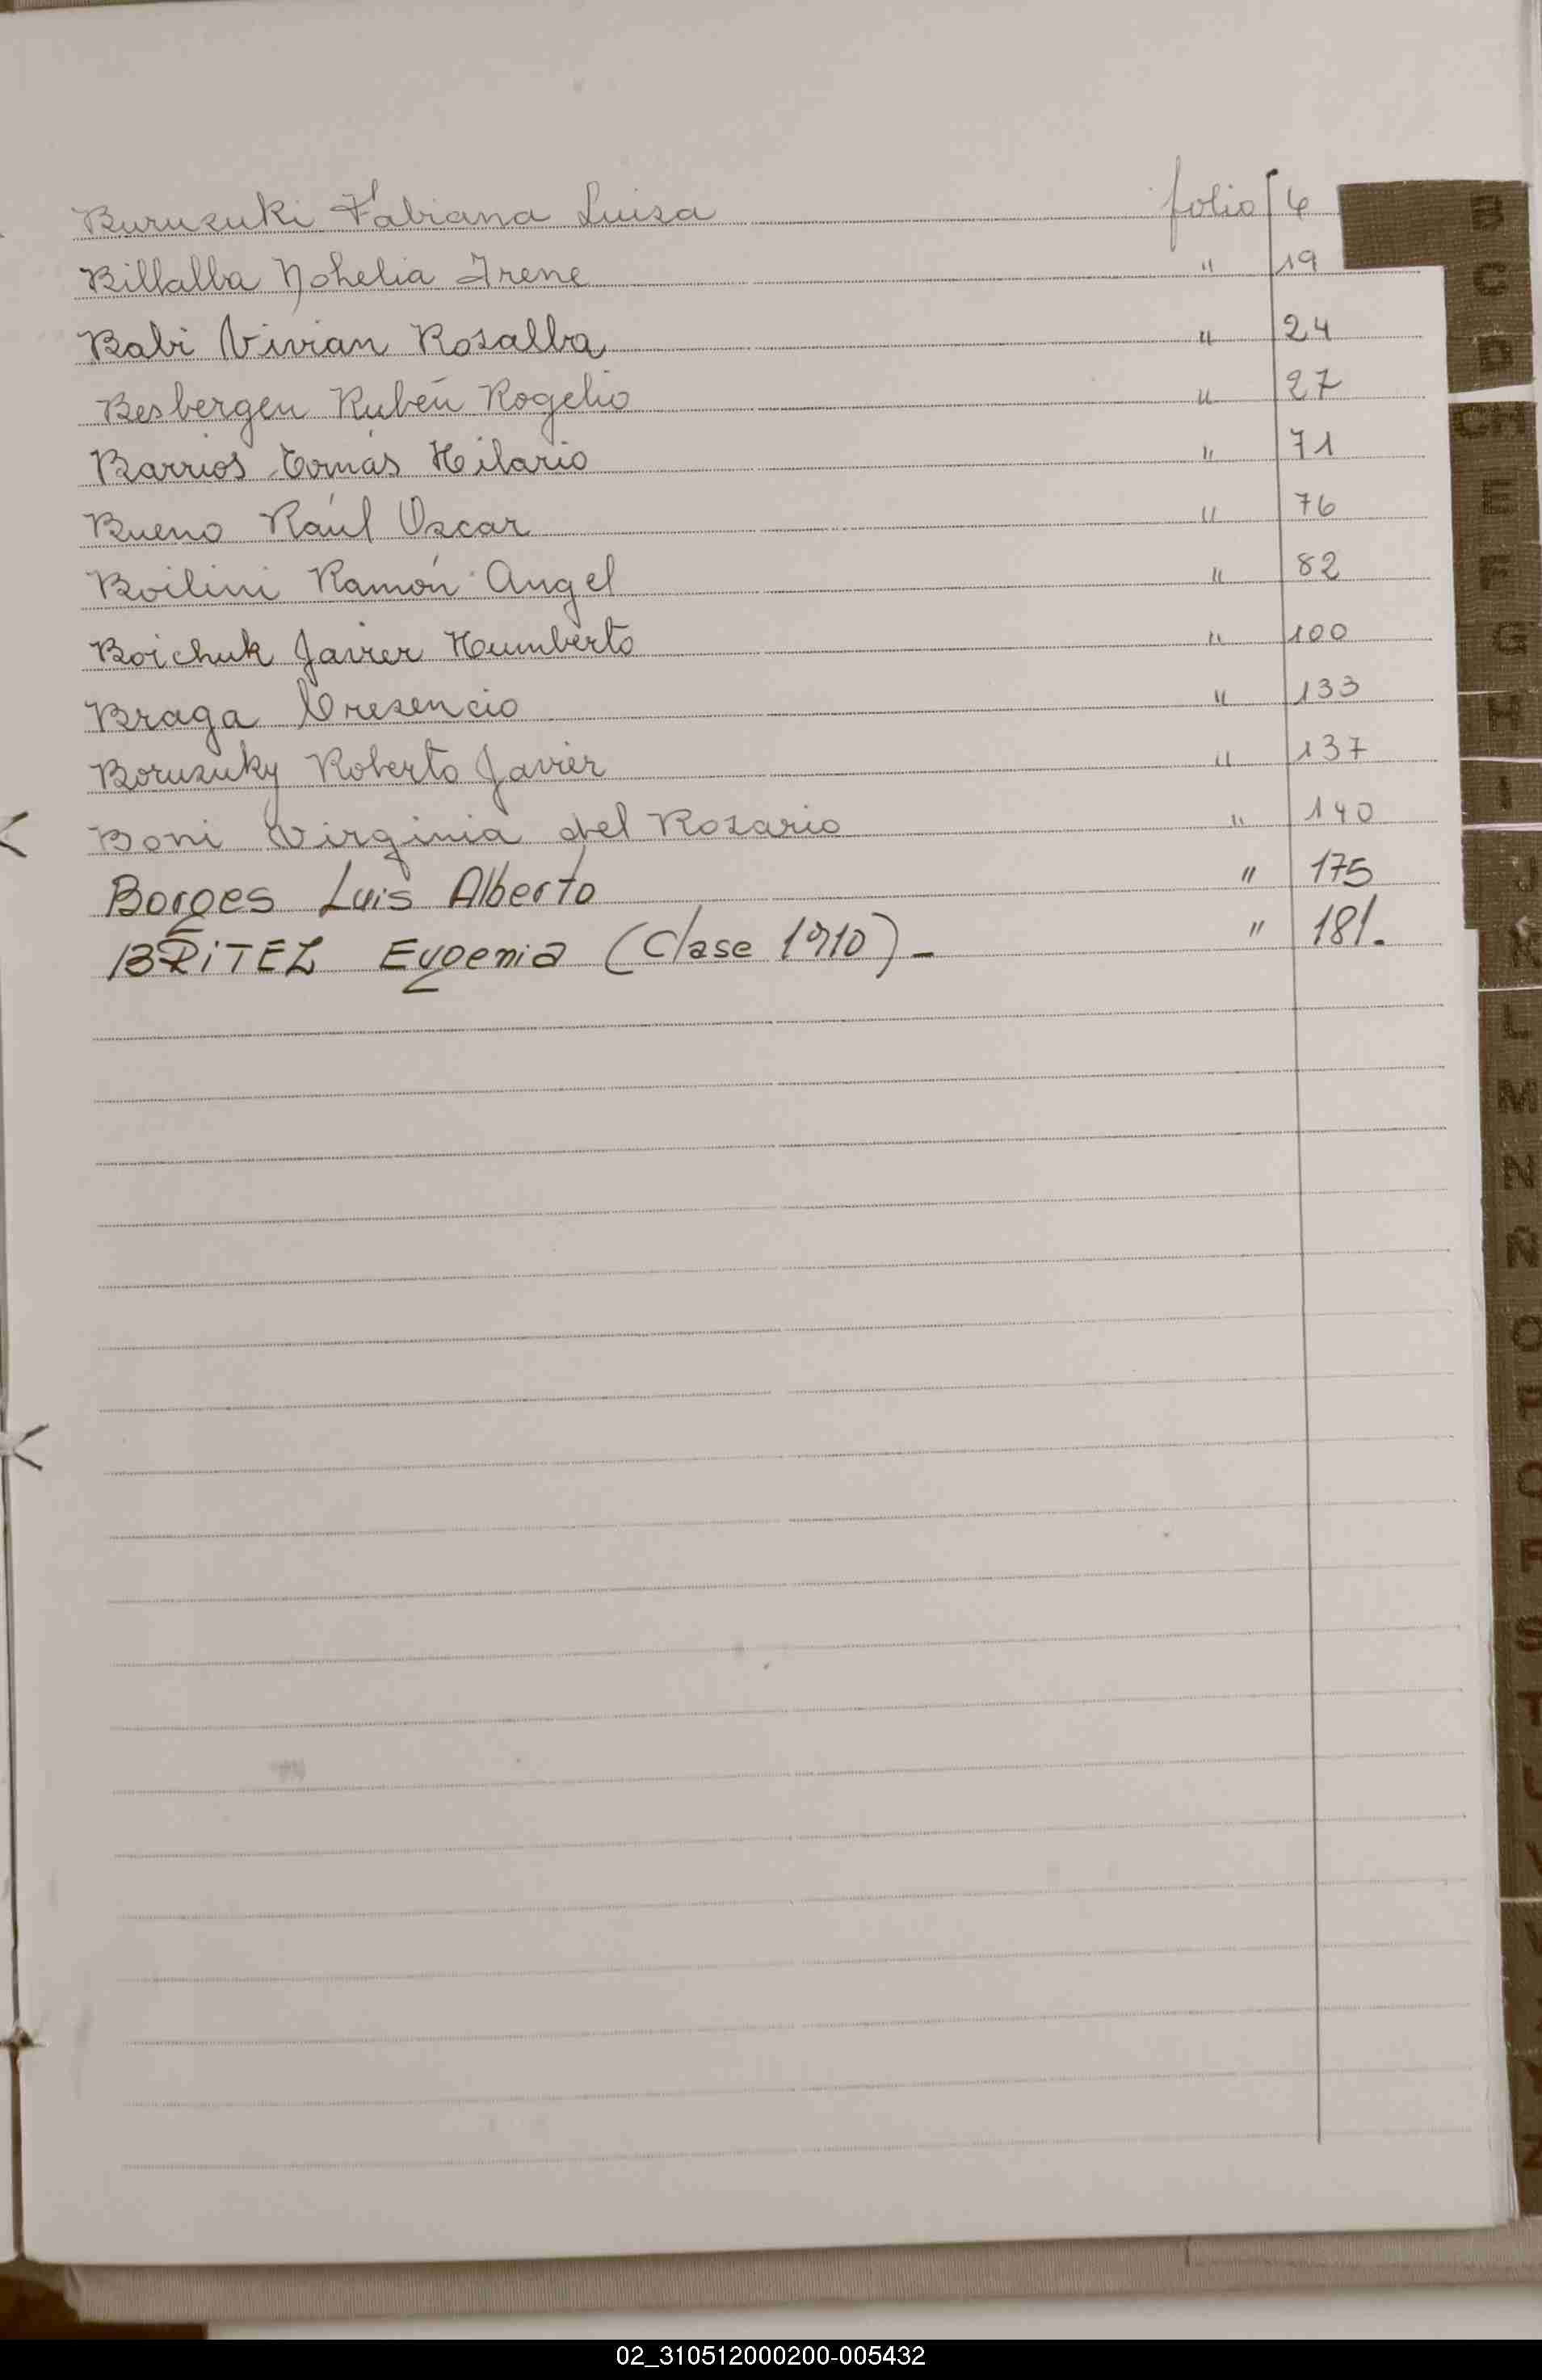 Buruzuki Fabiana Luisa folio 6
Billalba Nohelia Irene " 19
Babi Vivian Rosalba " 24
Besbergen Rubén Rogelio " 27
Barrios Tomás Hilario " 71
Bueno Raúl Oscar " 76
Boilini Ramón Angel " 82
Boichuk Javier Humberto " 100
Braga Cresencio " 133
Boruzuky Roberto Javier " 137
Boni Virginia del Rosario " 140
Borges Luis Alberto " 175
BRITEZ Eugenia (Clase 1910) - " 181.
B
C
D
CH
E
F
G
H
I
J
K
L
M
N
Ñ
O
P
Q
R
S
T
U
V
02_310512000200-005432